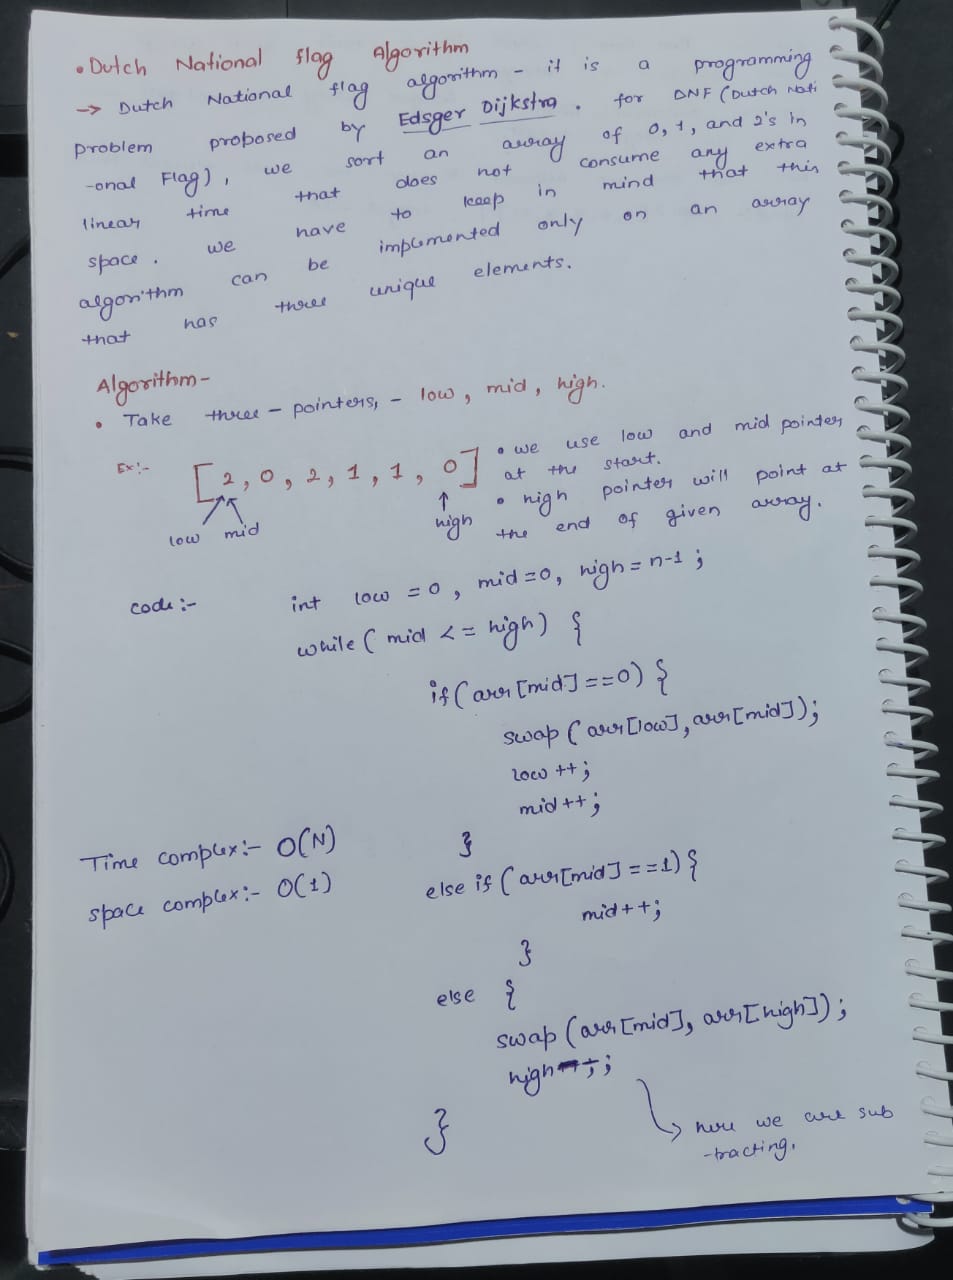 • Dutch National flag Algorithm
→ Dutch National flag algorithm - it is a programming
problem proposed by Edsger Dijkstra. for DNF (Dutch Nati
-onal Flag), we sort an array of 0, 1, and 2's in
linear time that does not consume any extra
space. we have to keep in mind that this
algorithm can be implemented only on an array
that has three unique elements.
Algorithm-
• Take three - pointers, - low, mid, high.
Ex:- [2, 0, 2, 1, 1, 0]
low mid high
• we use low and mid pointer
at the start.
• high pointer will point at
the end of given array.
code :- int low = 0, mid = 0, high = n-1 ;
while ( mid <= high) {
if ( arr [mid] == 0) {
swap ( arr [low], arr [mid]);
low ++ ;
mid ++ ;
}
Time complex:- O(N)
space complex:- O(1)
else if ( arr [mid] == 1) {
mid++;
}
else {
swap (arr [mid], arr [high]);
high--;
}
→ here we are sub
-tracting.